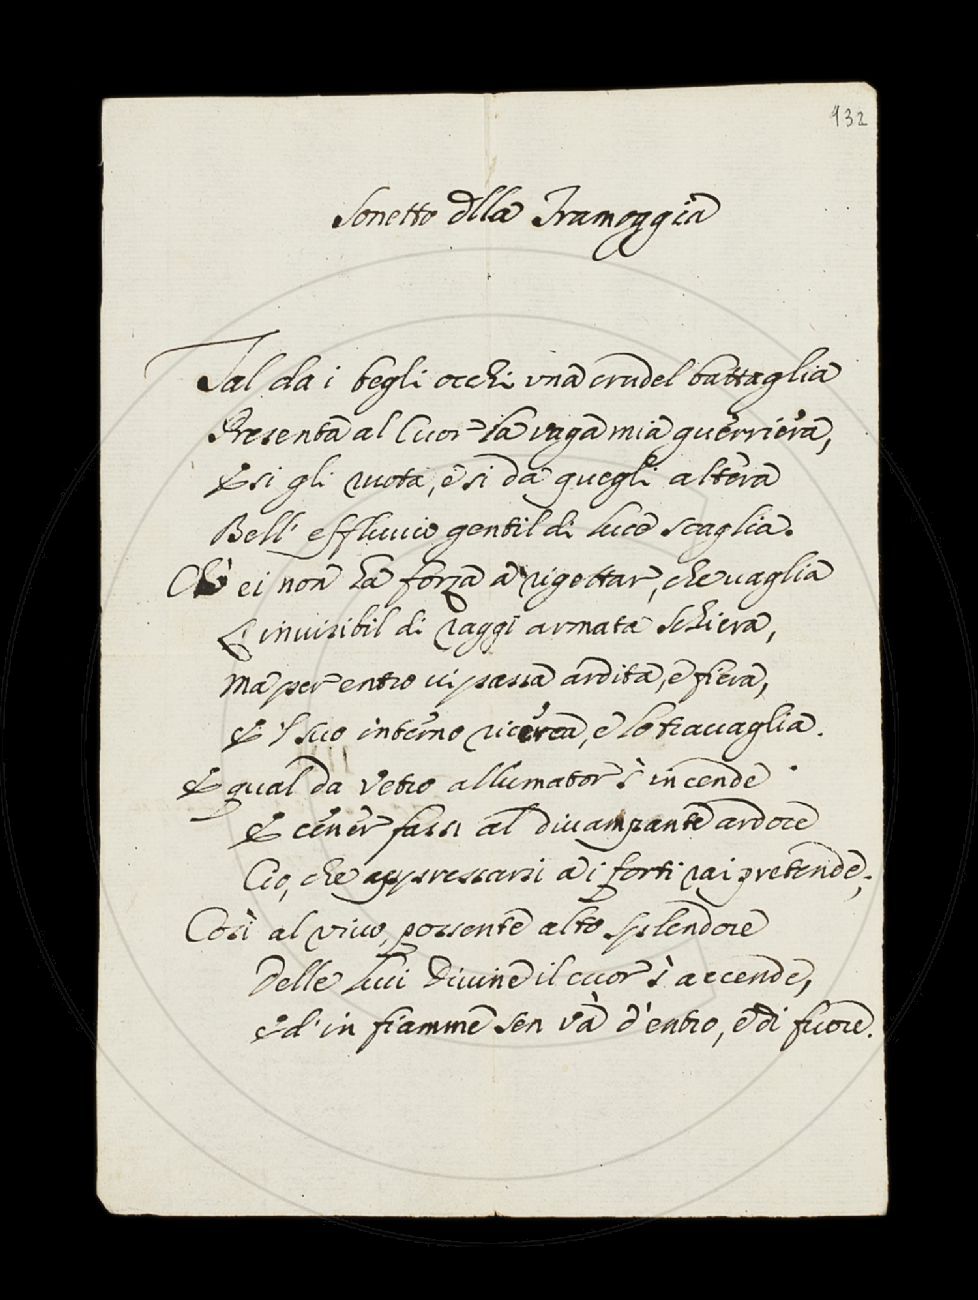 132
Sonetto dlla Tramoggia
Tal da i begli occhi vna crudel battaglia
Presenta al Cuor la vaga mia guerriera,
E si gli ruota, e si da quegli altera
Bell' effluuio gentil di luce scaglia.
Ch' ei non ha forza a rigettar, che vaglia
L' inuisibil di raggi armata schiera,
Ma per entro ui passa ardita, e fiera,
E 'l suo interno ricerca, e lo trauaglia.
E qual da vetro allumator s' incende
E cener fassi al diuampante ardore
Cio, che appressarsi a i forti rai pretende;
Così al viuo, possente alto splendore
Delle luci Diuine il cuor s' accende,
E d' in fiamme sen và d' entro, e di fuore.